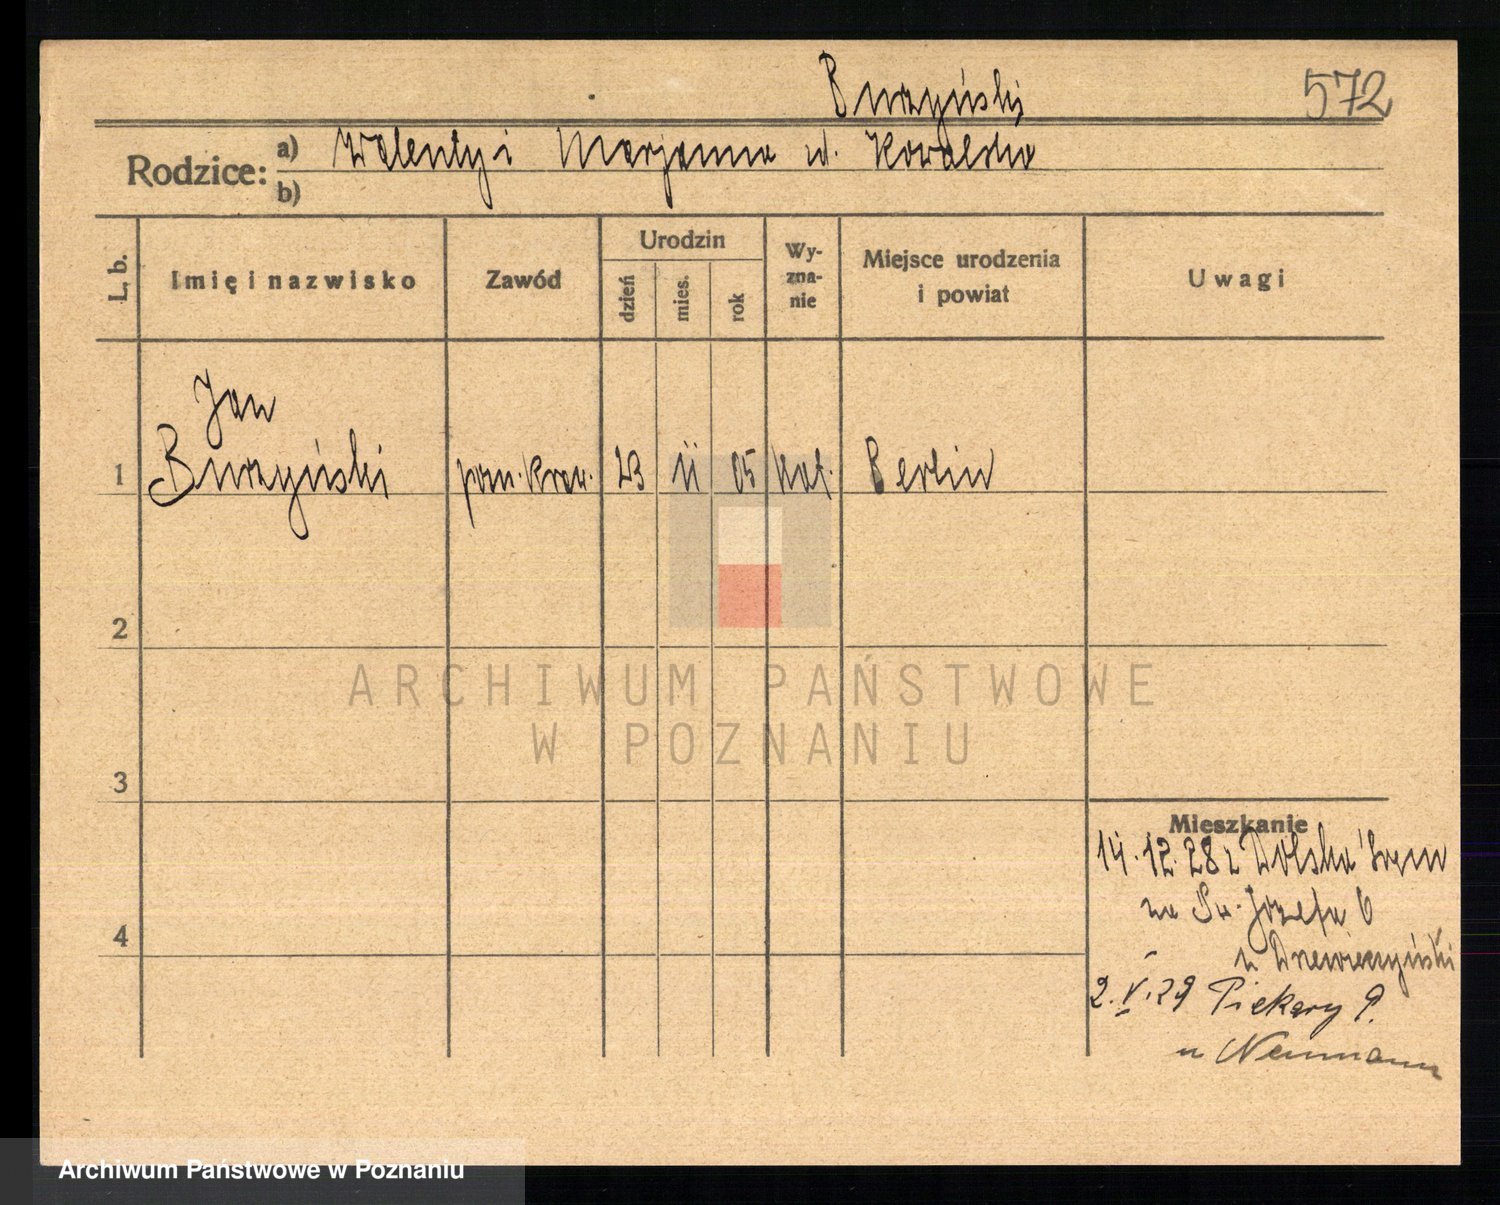 Burzyński 572
Rodzice: a) Walenty i Marjanna ur. Kowalska
b)
L. b. Imię i nazwisko Zawód Urodzin dzień mies. rok Wy-zna-nie Miejsce urodzenia i powiat Uwagi
Jan
1 Burzyński pom. kraw. 23 11 05 kat. Berlin
2
3
4
Mieszkanie
14.12.28 z Dolska Śrem
na Św. Józefa 6
u
2.V.29 Piekary 9.
u Neumann
ARCHIWUM PAŃSTWOWE
W POZNANIU
Archiwum Państwowe w Poznaniu